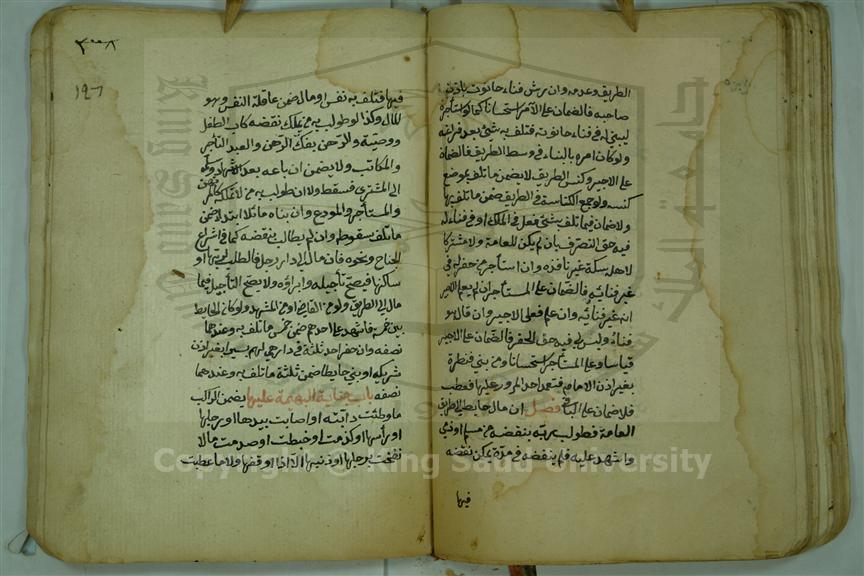 الطريق وعدمه وان رش فناء حانوت باذن
صاحبه فالضمان على الآمر استحسانا كما لو استأجره
ليبني له في فناء حانوته فتلف به شئ بعد فراغه
ولو كان امره بالبناء في وسط الطريق فالضمان
على الاجير ولو كنس الطريق لا يضمن ما تلف بموضع
كنسه ولو جمع الكناسة في الطريق ضمن ما تلف بها
ولا ضمان فيما تلف بشئ فعل في الملك او في فناء له
فيه حق التصرف بان لم يكن للعامة ولا مشتركا
لاهل سكة غير نافذة وان استأجر من حفر له في
غير فنائه فالضمان على المستأجر ان لم يعلم الاجير
انه غير فنائه وان علم فعلى الاجير وان قال هو
فنائى وليس لي فيه حق الحفر فالضمان على الاجير
قياسا وعلى المستأجر استحسانا ومن بنى قنطرة
بغير اذن الامام فتعمد احد المرور عليها فعطب
فلا ضمان على الباني فصل ان مال حايط الى طريق
العامة فطولب ربه بنقضه من مسلم او ذمي
واشهد عليه فلم ينقضه في مدة يمكن نقضه
فيها
١٩٦
فيها فتلف به نفس او مال ضمن عاقلة النفس وهو
المال وكذا لو طولب به من يملك نقضه كاب الطفل
ووصيته والراهن بفك الرهن والعبد التاجر
والمكاتب ولا يضمن ان باعه بعد الاشهاد وسلمه
الى المشتري فسقط ولا ان طولب به من لا يملك كالمرتهن
والمستأجر والمودع وان بناه مائلا ابتداء ضمن
ما تلف بسقوطه وان لم يطالب بنقضه كما في اشراع
الجناح ونحوه فان مال الى دار رجل فالطلب لربها او
ساكنها فيصح تأجيله وابراؤه ولا يصح التأجيل فيما
مال الى الطريق ولو من القاضي او من المشهد ولو كان الحايط
بين خمسة فاشهد على احدهم ضمن خمس ما تلف به وعندهما
نصفه وان حفر احد ثلثة في دار هي لهم بيرا بغير اذن
شريكه او بنى حايطا ضمن ثلثى ما تلف به وعندهما
نصفه باب جناية البهيمة عليها يضمن الراكب
ما وطئت دابته او اصابت بيدها او رجلها
او رأسها او كدمت او خبطت او صدمت لا ما
نفحت برجلها او ذنبها الا اذا اوقفها ولا ما عطب
Copyright © King Saud University